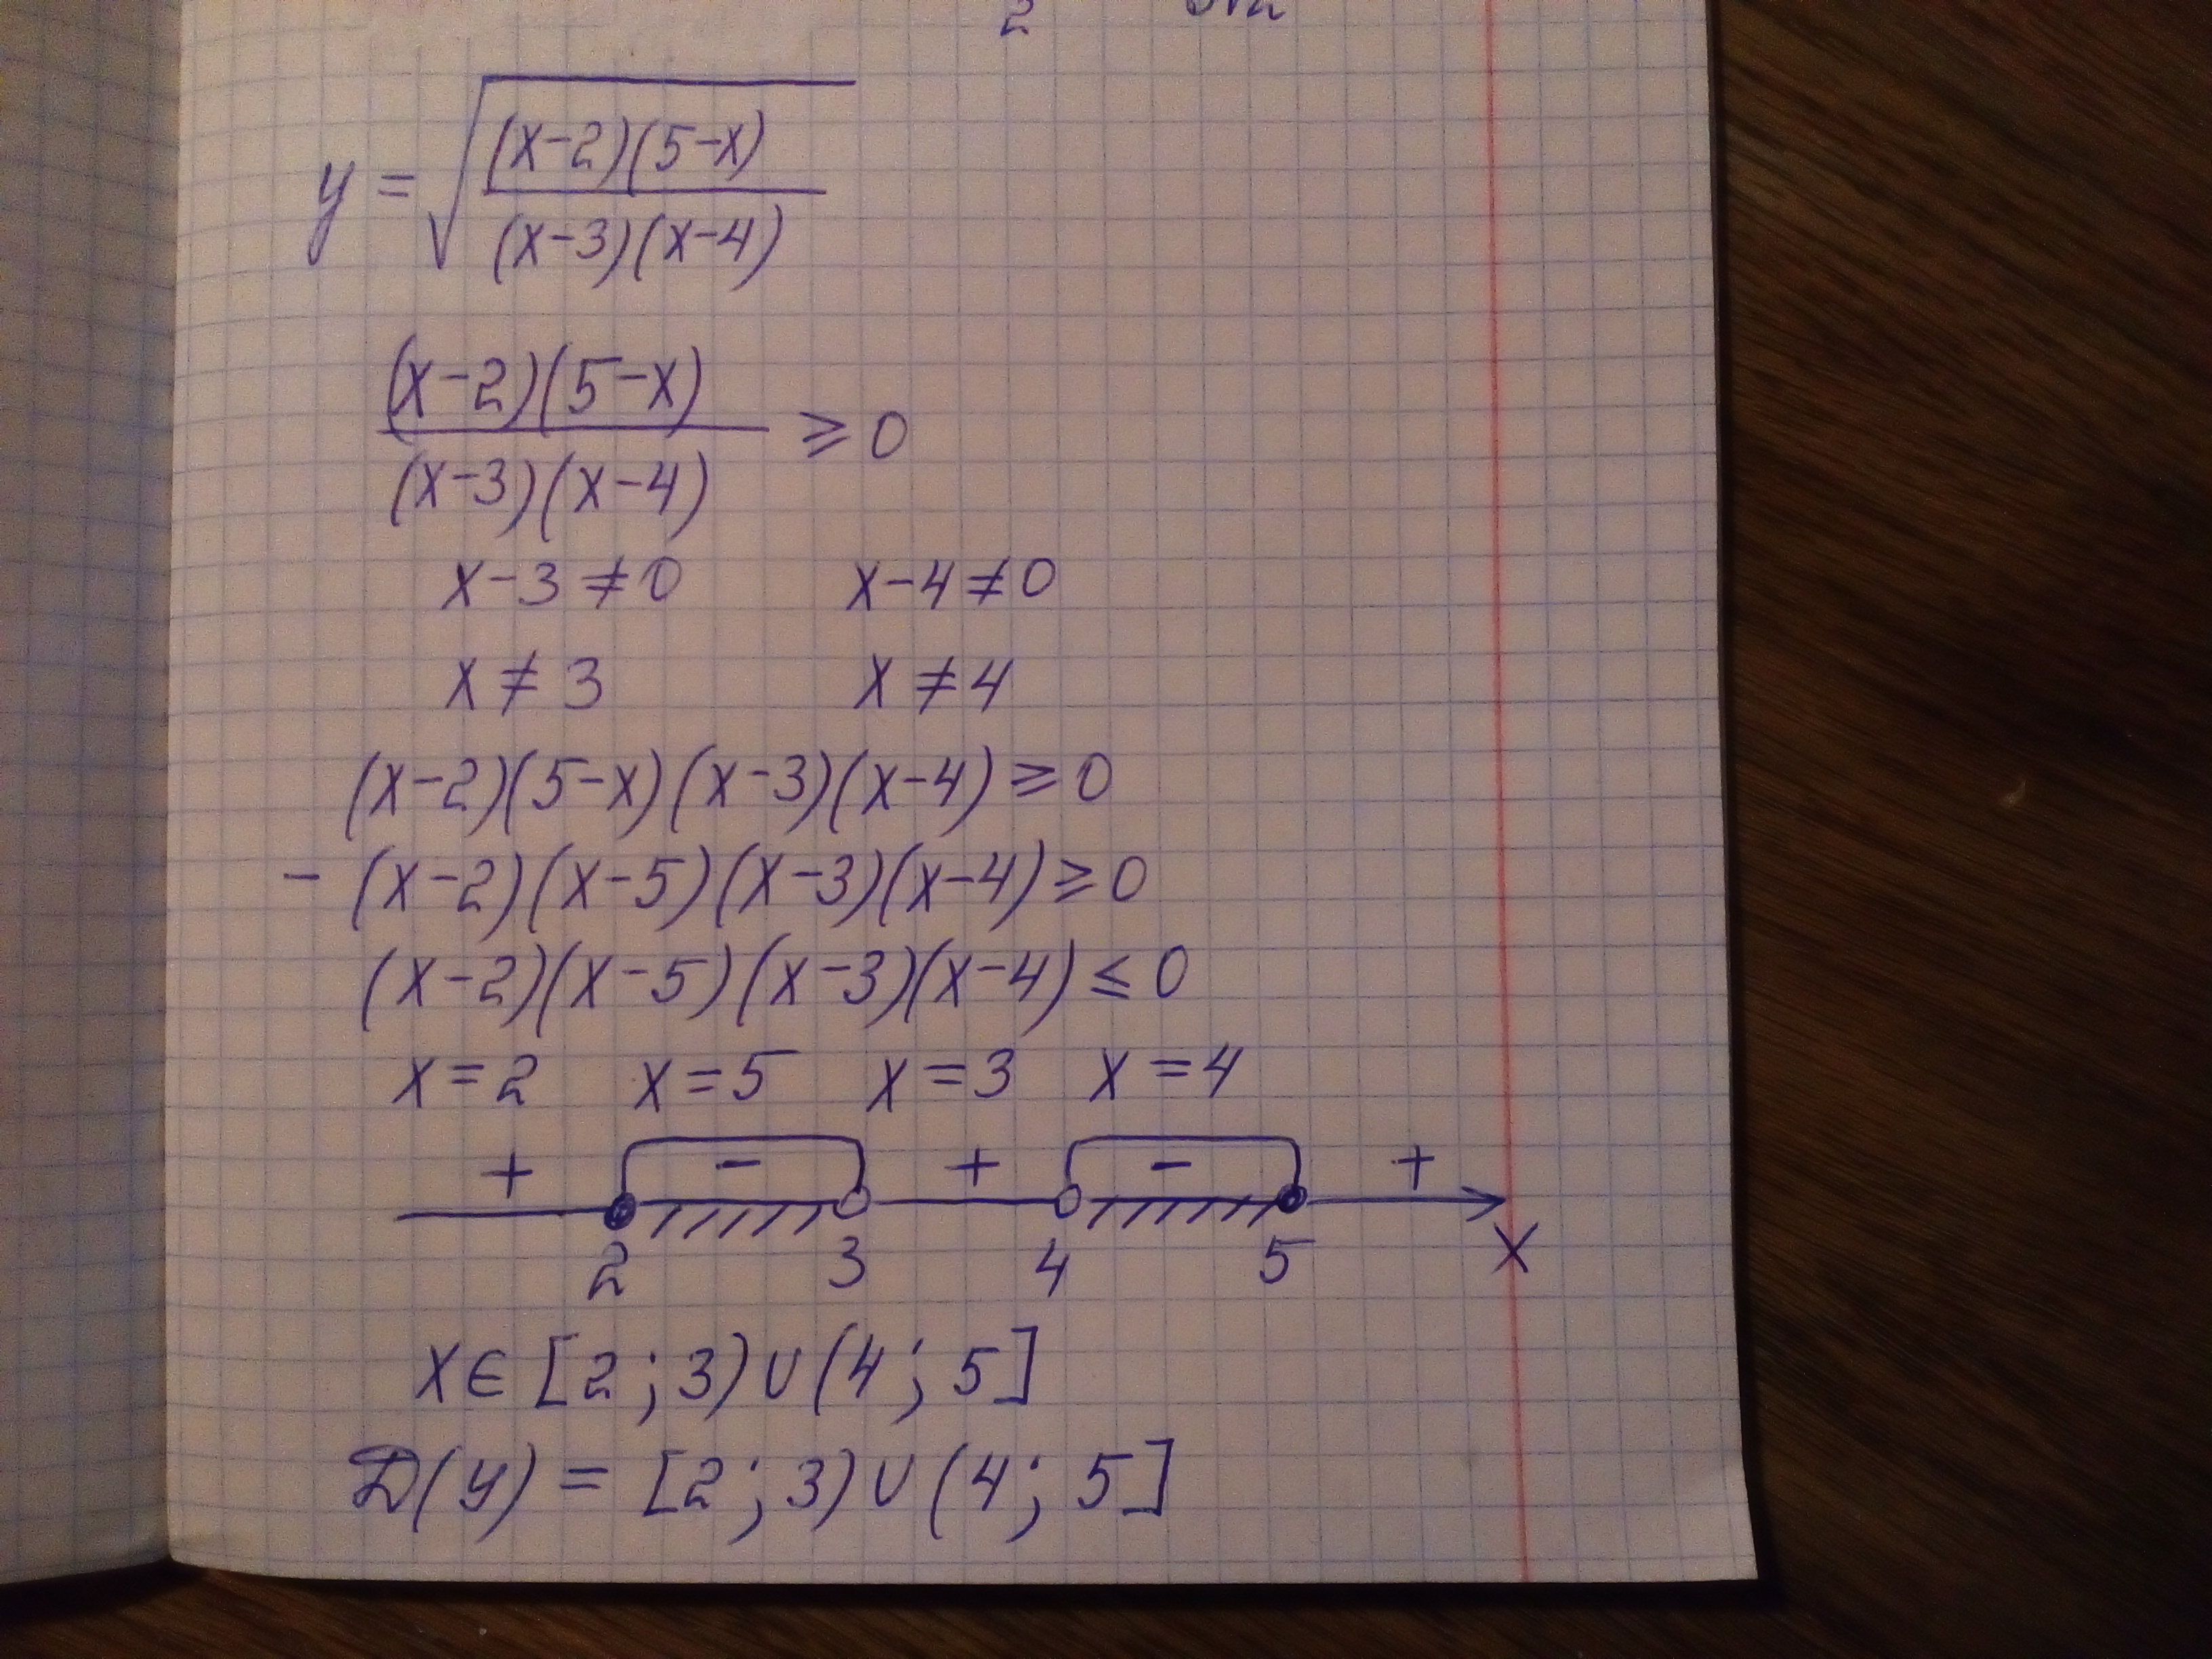 2
y = √((x-2)(5-x) / (x-3)(x-4))
(x-2)(5-x) / (x-3)(x-4) ⩾ 0
x-3 ≠ 0 x-4 ≠ 0
x ≠ 3 x ≠ 4
(x-2)(5-x)(x-3)(x-4) ⩾ 0
-(x-2)(x-5)(x-3)(x-4) ⩾ 0
(x-2)(x-5)(x-3)(x-4) ⩽ 0
x=2 x=5 x=3 x=4
+ - + - +
2 3 4 5 x
x∈[2;3)∪(4;5]
D(y) = [2;3)∪(4;5]